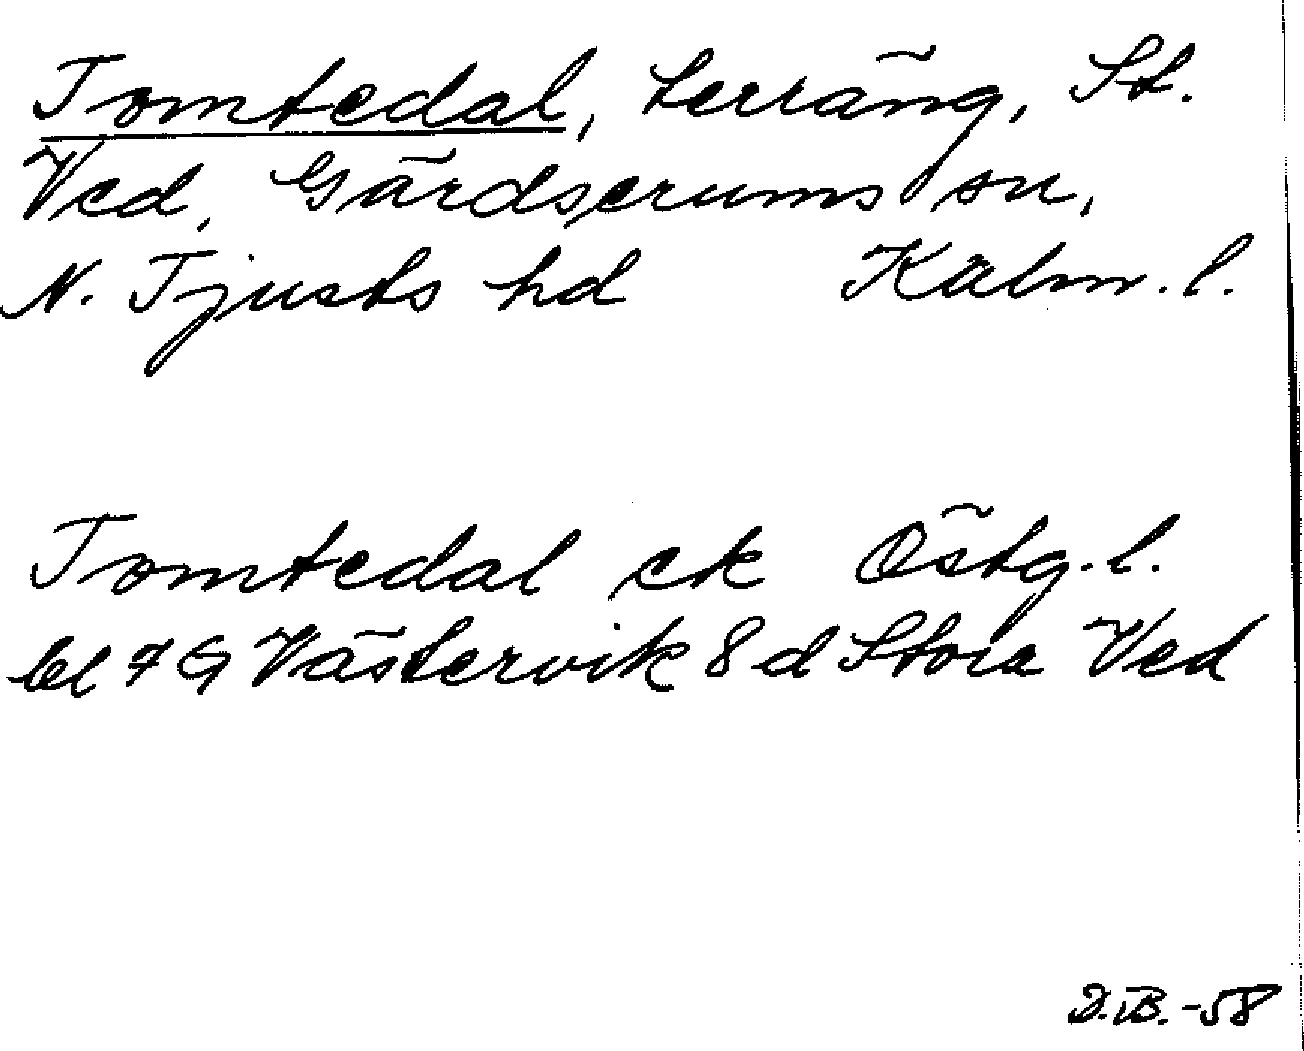 Tomtedal, terräng, St.
Ved, Gärdserums sn,
N. Tjusts hd Kalm. l.
Tomtedal ek Östg. l.
bl 7 G Västervik 8 d Stora Ved
D.B. -58